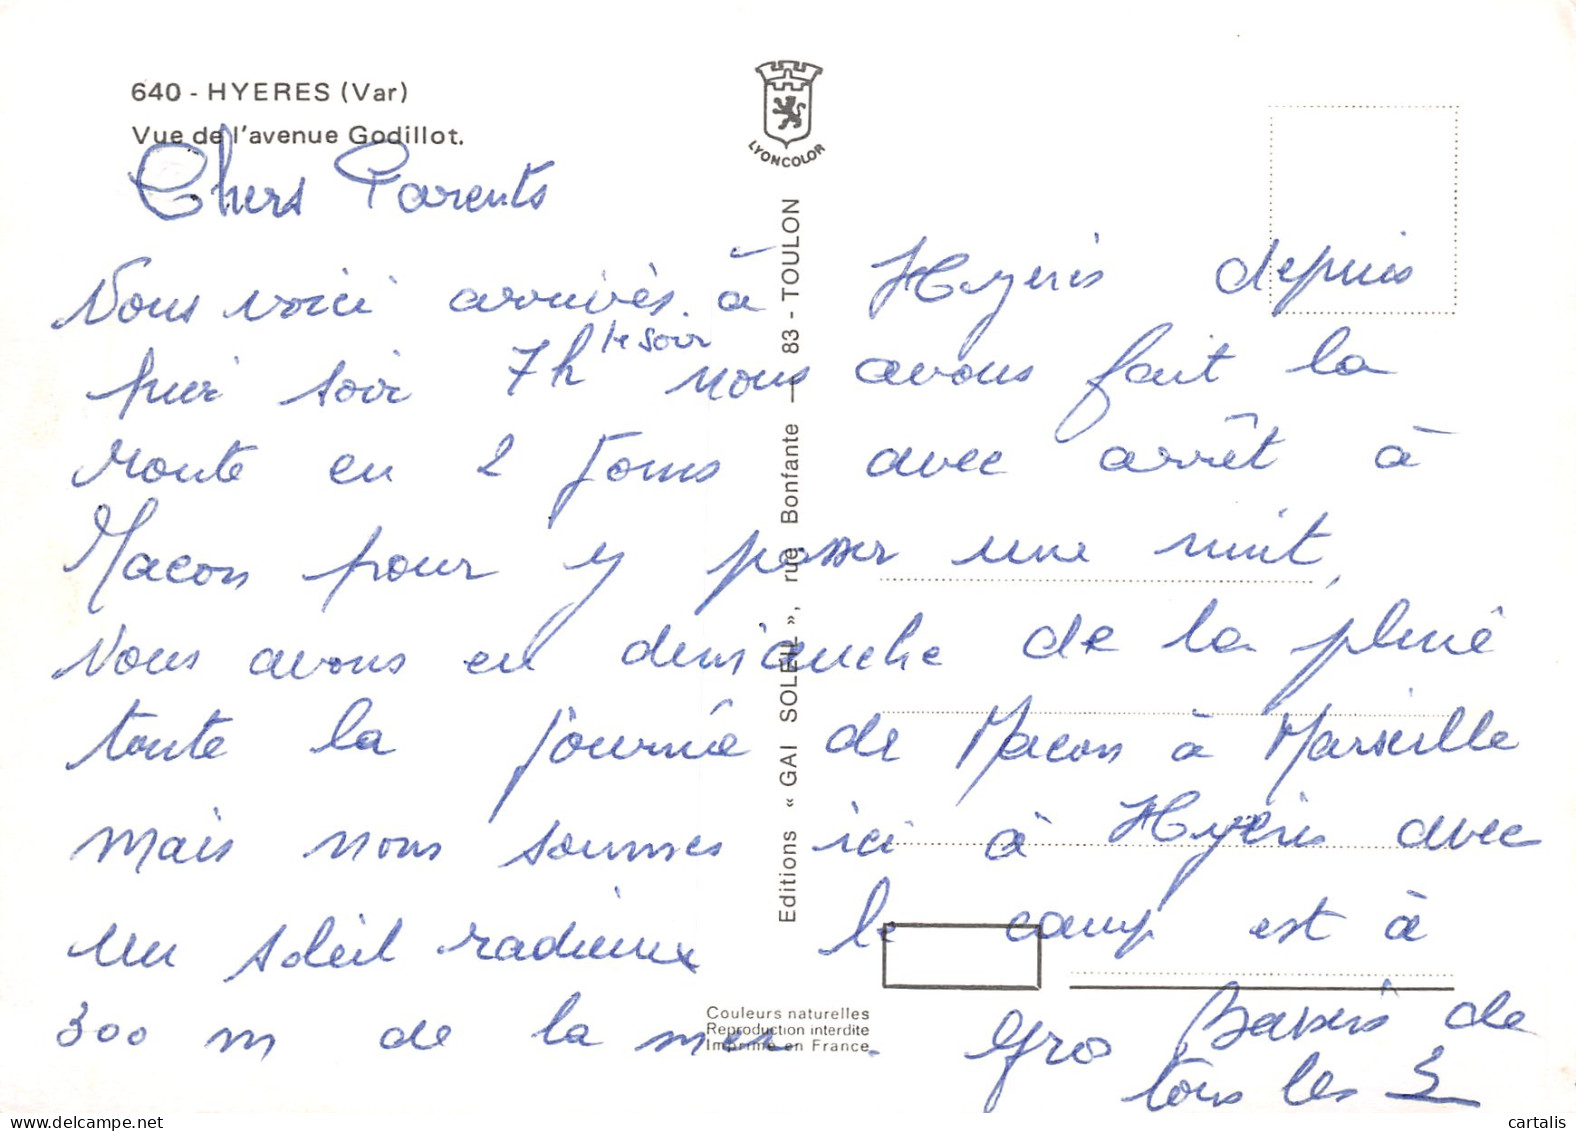 640 - HYERES (Var)
Vue de l'avenue Godillot.
LYONCOLOR
Chers Parents
Nous voici arrivés à Hyeris depuis
hier soir 7h le soir nous avons fait la
route en 2 Jours avec arrêt à
Macon pour y passer une nuit,
Nous avons eu dimanche de la pluie
toute la journée de Macon à Marseille
mais nous sommes ici à Hyéris avec
un soleil radieux le camp est à
300 m de la mer. Gros Baisers de
tous les 3
Editions « GAI SOLEIL », rue Bonfante — 83 - TOULON
Couleurs naturelles
Reproduction interdite
Imprimé en France
cartalis